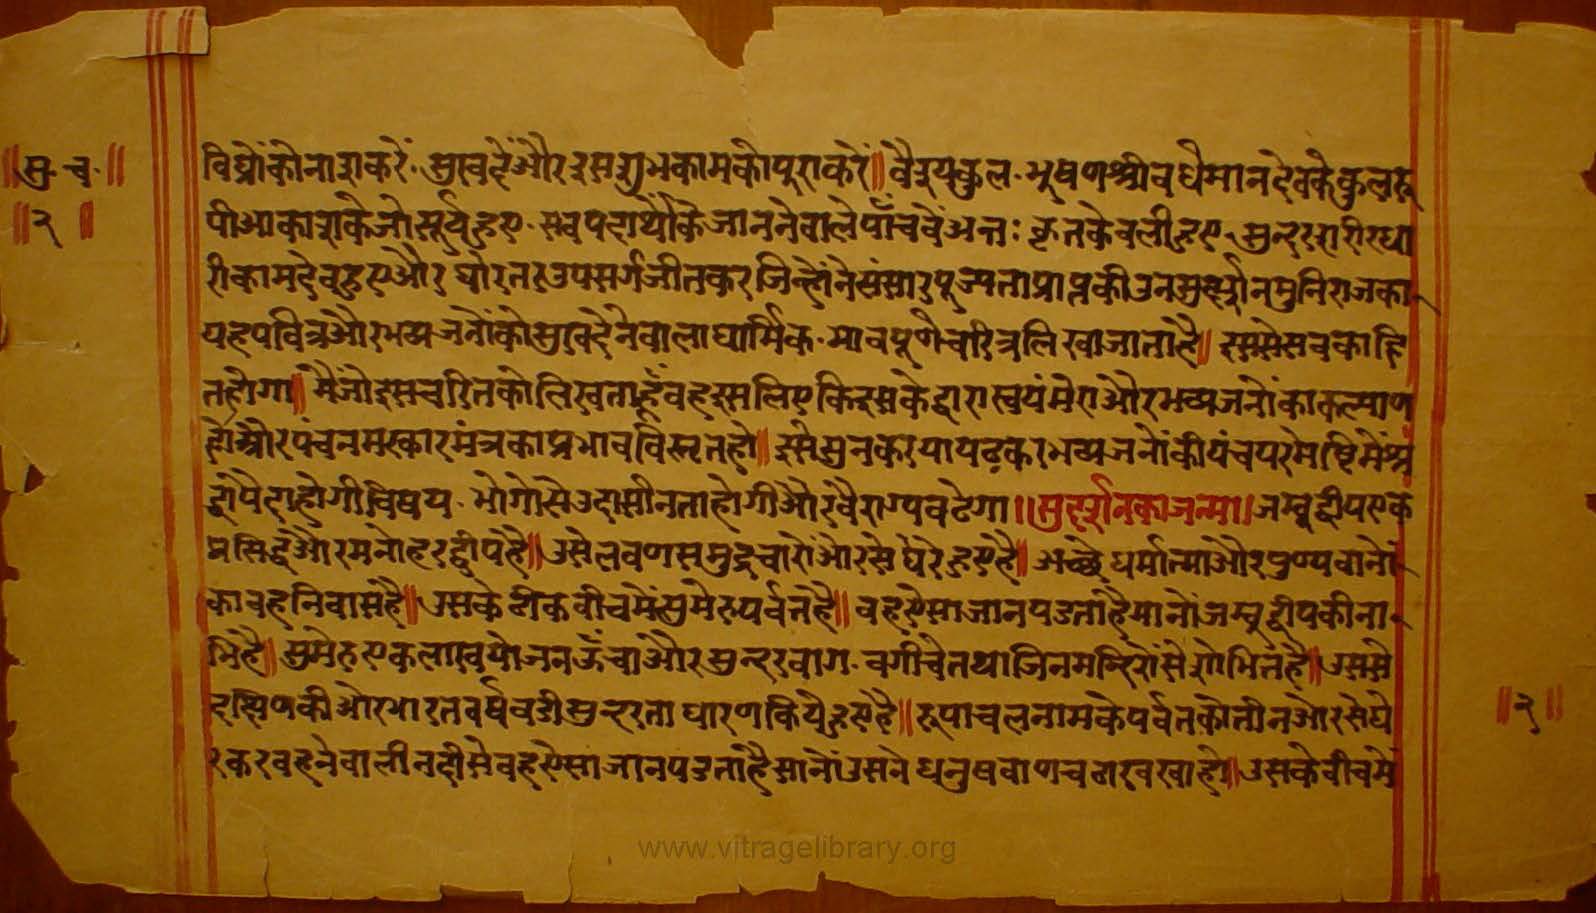 ॥सु.च.॥
॥२॥
विघ्नोंकोनाशकरें.सुखदेंऔरइसशुभकामकोपूराकरें॥वैश्यकुल.भूषणश्रीवर्धमानदेवकेकुलरू
पीआकाशकेजोसूर्यहुए.सबपदार्थोंकेजाननेवालेपाँचवेंअन्त:कृतकेवलीहुए.सुन्दरशरीरधा
रीकामदेवहुएऔरघोरतरउपसर्गजीतकरजिन्होंनेसंसारपूज्यताप्राप्तकीउनसुदर्शनमुनिराजका.
यहपवित्रऔरभव्यजनोंकोसुखदेनेवालाधार्मिक.भावपूर्णचरित्रलिखाजाताहै॥इससेसबकाहि
तहोगा॥मैंजोइसचरितकोलिखताहूँवहइसलिएकिइसकेद्वारास्वयंमेराऔरभव्यजनोंकाकल्याण
होऔरपंचनमस्कारमंत्रकाप्रभावविस्तृतहो॥इसेसुनकरयापढ़करभव्यजनोंकीपंचपरमेष्ठिमेंश्र
द्धापैदाहोगीविषय.भोगोंसेउदासीनताहोगीऔरवैराग्यबढेगा॥सुदर्शनकाजन्म॥जम्बूद्वीपएक
प्रसिद्धऔरमनोहरद्वीपहै॥उसेलवणसमुद्रचारोंओरसेघेरेहुएहै॥अच्छेधर्मात्माओऔरपुण्यवानों
कावहनिवासहै॥उसकेठीकबीचमेंसुमेरुपर्वतहै॥वहऐसाजानपडताहैमानोंजम्बुद्वीपकीना.
भिहै॥सुमेरुएकलाखयोजनऊँचाऔरसुन्दरबाग.बगीचेतथाजिनमन्दिरोंसेशोभितहै॥उससे
दक्षिणकीओरभारतवर्षबडीसुन्दरताधारणकियेहुएहै॥रूपाचलनामकेपर्वतकोतीनओरसेघे
रकरबहनेवालीनदीसेवहऐसाजानपडताहैमानोंउसनेधनुषबाणचढारखाहो॥उसकेबीचमें
॥२॥
www.vitragelibrary.org